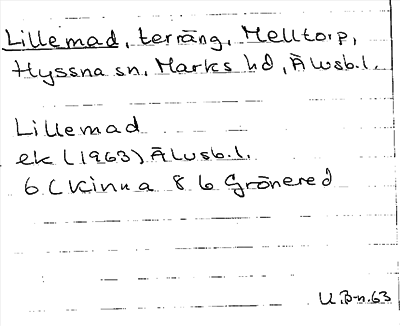 Lillemad, terräng, Melltorp,
Hyssna sn, Marks hd, Älvsb. l.
Lillemad
ek (1963) Älvsb. l.
6 C Kinna 8 b Grönered
U. B-n. 63